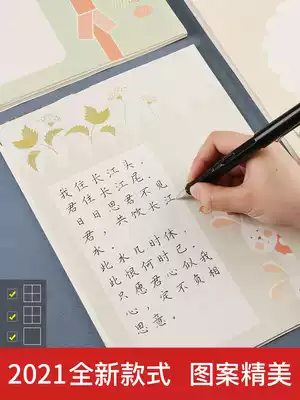 我住长江头，
君住长江尾，
日日思君不见
君，共饮长江
水。
此水几时休，
此恨何时已，
只愿君心似我
心，定不负相
思意。
2021全新款式 图案精美